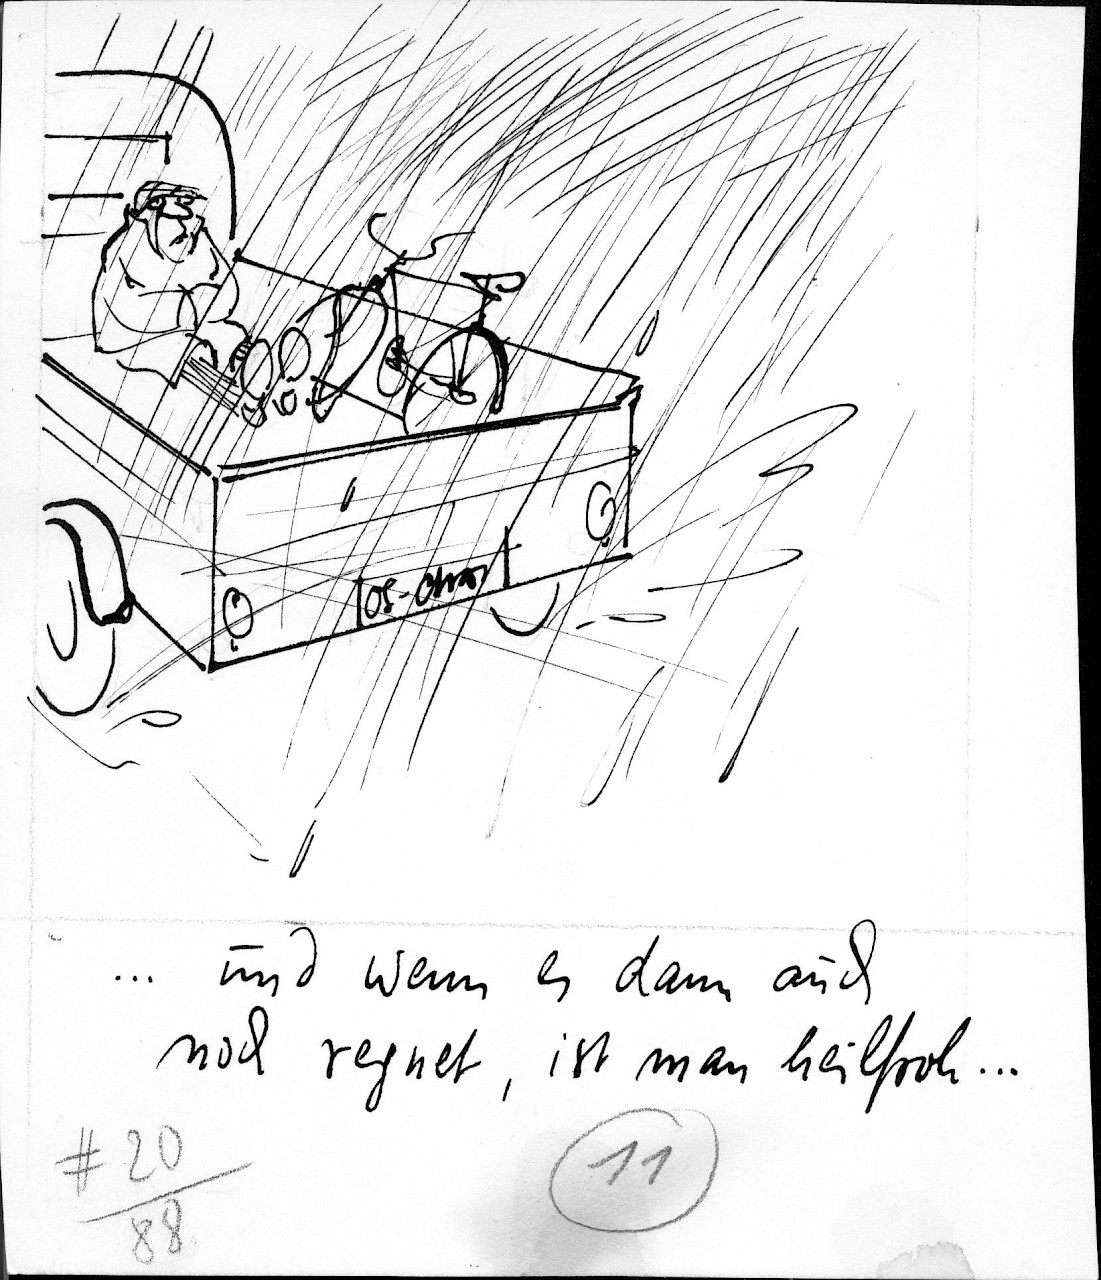 ... und wenn es dann auch
noch regnet, ist man heilfroh...
# 20
88
11